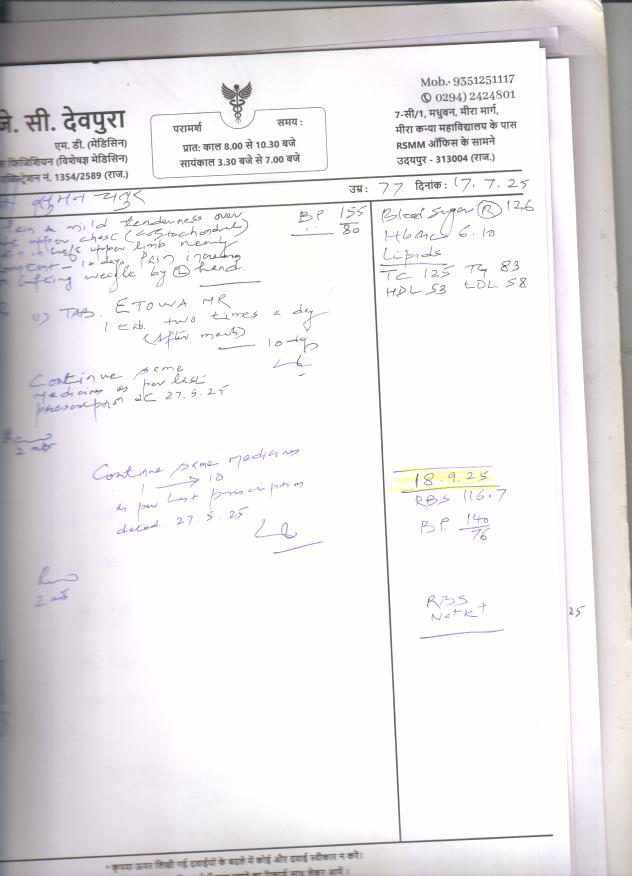 Mob.- 9351251117
(0294) 2424801
जे. सी. देवपुरा
एम.डी. (मेडिसिन)
फिजिशियन (विशेषज्ञ मेडिसिन)
नं. 1354/2589 (राज.)
परामर्श समय :
प्रातः काल 8.00 से 10.30 बजे
सायंकाल 3.30 बजे से 7.00 बजे
7-सी/1, मधुबन, मीरा मार्ग,
मीरा कन्या महाविद्यालय के पास
RSMM ऑफिस के सामने
उदयपुर - 313004 (राज.)
उम्र : 77 दिनांक : 17.7.25
सुमन
Pain & mild tenderness over
upper chest (costochondral)
in left upper limb
10 days, Pain
lifting weight by (L) hand.
BP 155
80
Blood Sugar (R) 126
HbA1c 6.10
Lipids
TC 125 TG 83
HDL 53 LDL 58
TAB. ETOWA MR
1 tab. two times a day
(After meals)
10
Continue same
medicines as per last
prescription dt 27.5.25
2
Continue same medicines
1 → 10
as per last prescription
dated 27.5.25
18.9.25
RBS 116.7
BP. 140
76
2
RBS
Na+ K+
25
* कृपया ऊपर लिखी गई दवाईयों के बदले में कोई और दवाई स्वीकार न करें।